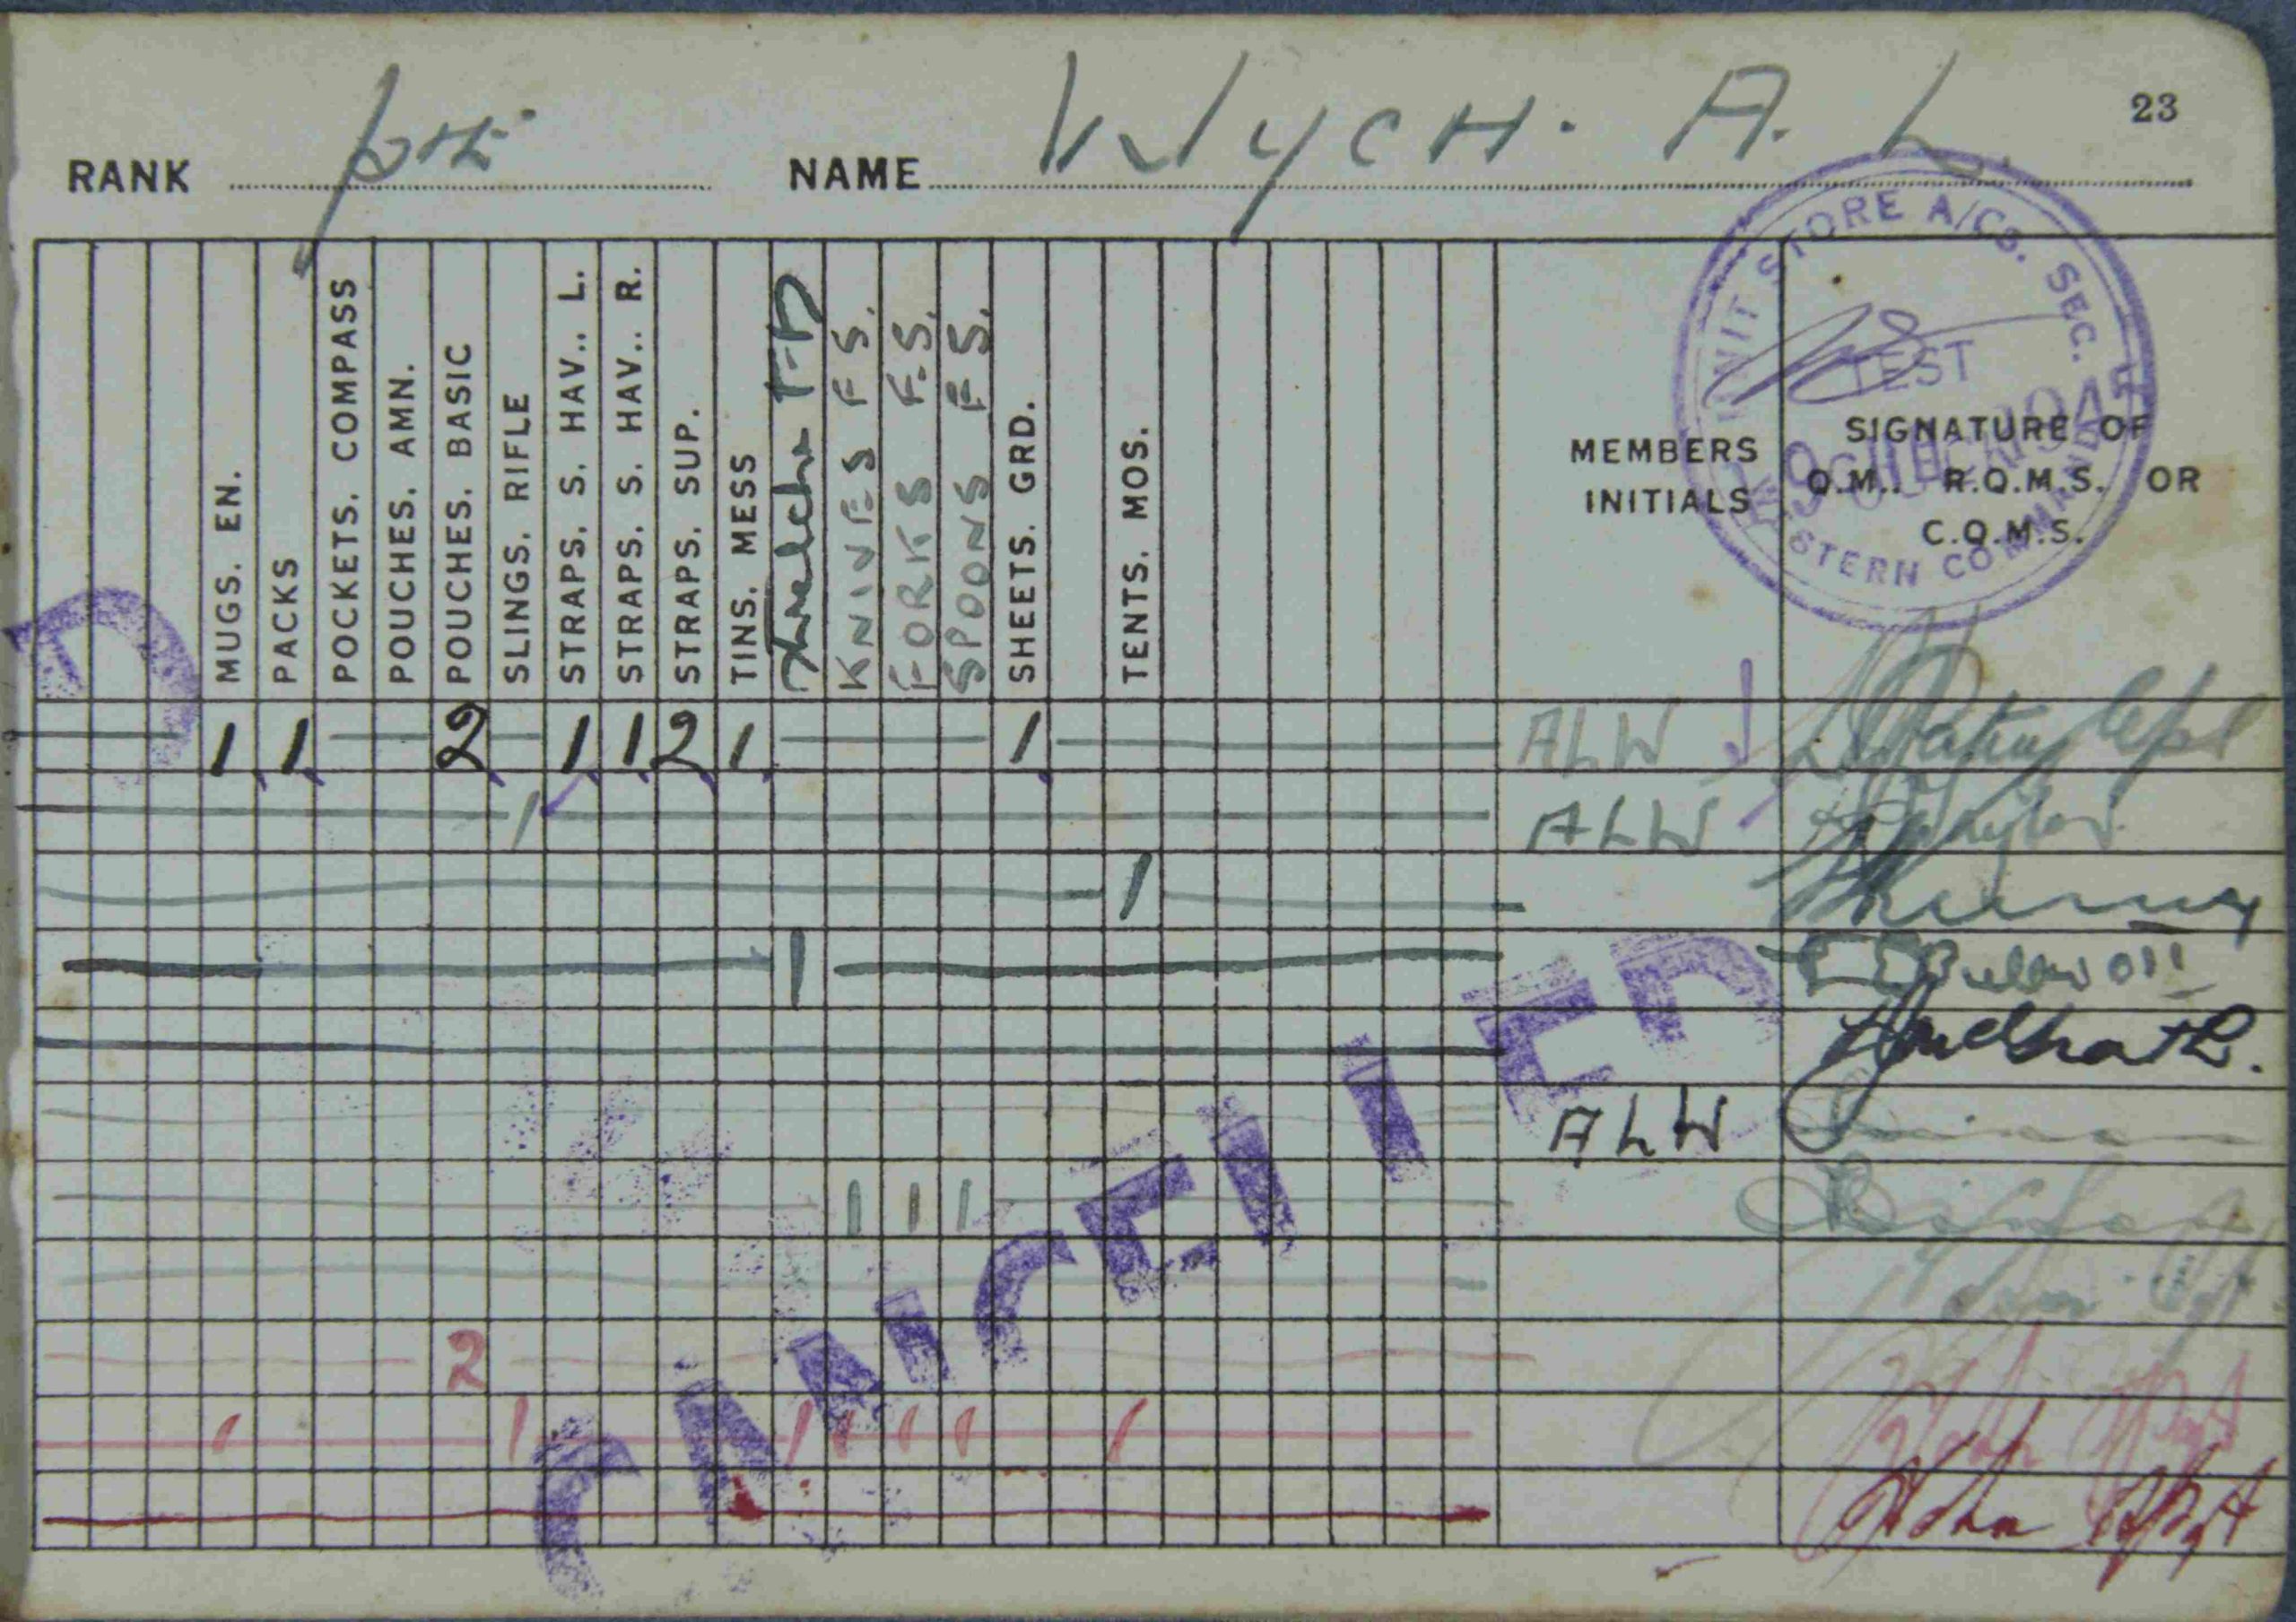 23
RANK pte NAME WycH. A. L.
UNIT STORE A/Cs. SEC.
TEST
CHECK
WESTERN COMMAND
MUGS. EN.
PACKS
POCKETS. COMPASS
POUCHES. AMN.
POUCHES. BASIC
SLINGS. RIFLE
STRAPS. S. HAV.. L.
STRAPS. S. HAV.. R.
STRAPS. SUP.
TINS. MESS
KNIVES F S.
FORKS F.S.
SPOONS F S.
SHEETS. GRD.
TENTS. MOS.
MEMBERS
INITIALS
SIGNATURE OF
Q.M.. R.Q.M.S. OR
C.Q.M.S.
1 1 2 1 1 2 1 1 ALW
1 ALW
1
1
ALW
1 1 1
2
1 1 1 1 1 1 1
CANCELLED